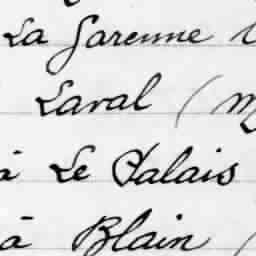 La Garenne
Laval (
à Le Palais
à Blain (